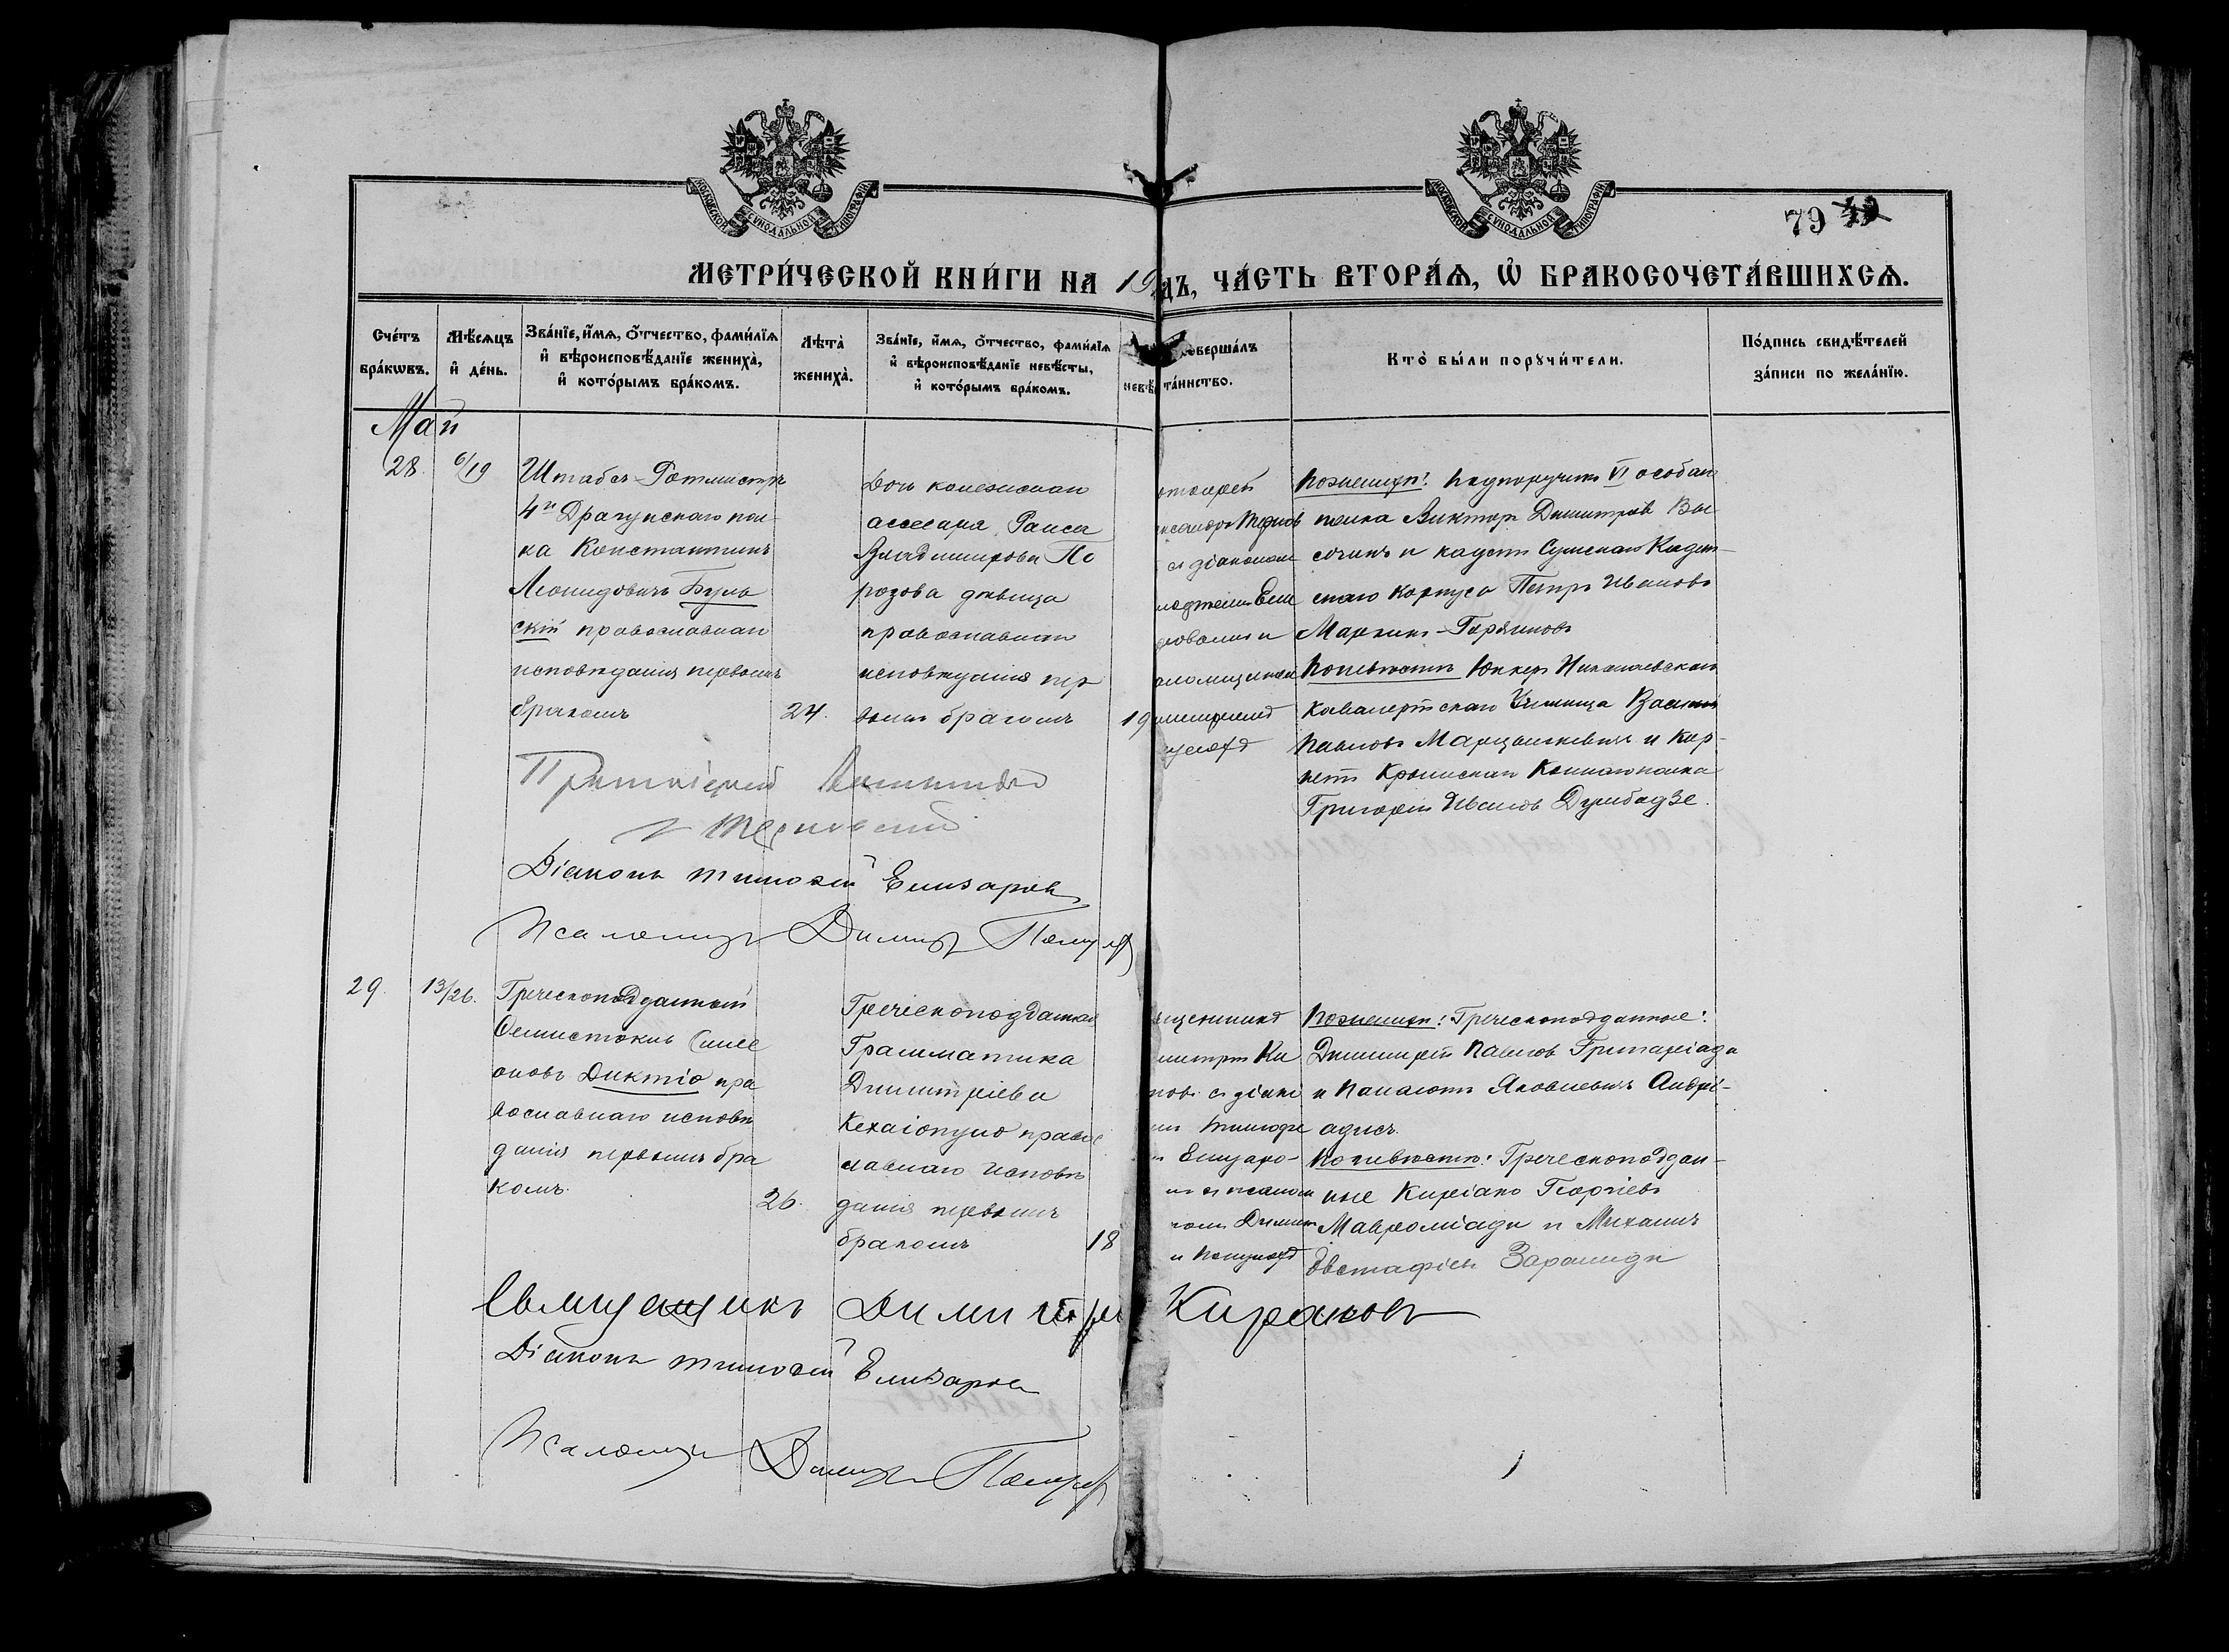 МОСКОВСКОЙ СѴНОДАЛЬНОЙ ТИПОГРАФІИ
МОСКОВСКОЙ СѴНОДАЛЬНОЙ ТИПОГРАФІИ
79
МЕТРИ́ЧЕСКОЙ КНИ́ГИ НА 19
дъ, ЧА́СТЬ ВТОРА́Ѧ, Ѡ҆ БРАКОСОЧЕТА́ВШИХСѦ.
Сче́тъ бра́кѡвъ.
Мѣ́сѧцъ и҆ де́нь.
Зва́нїе, и҆́мѧ, ѻ҆́тчество, фами́лїѧ и҆ вѣроисповѣ́данїе жениха̀, и҆ кото́рымъ бра́комъ.
Лѣта̀ жениха̀.
Зва́нїе, и҆́мѧ, ѻ҆́тчество, фами́лїѧ и҆ вѣроисповѣ́данїе невѣ́сты, и҆ кото́рымъ бра́комъ.
невѣ
соверша́лъ
та́инство.
Кто̀ бы́ли порꙋчи́тели.
По́дпись свидѣ́телей за́писи по жела́нїю.
Май
28.
6/19
Штабсъ-Ротмистръ
4го Драгунскаго пол-
ка Константинъ
Леонидовичъ Буль
скій православнаго
исповѣданія первымъ
бракомъ
24.
Дочь колежскаго
ассесара Раиса
Владимирова По
розова дѣвица
православнаго
исповѣданія пер
вымъ бракомъ
19
отоіерей
ксандръ Тернов
съ діакономъ
Тимоѳеемъ Ели
заровымъ и
псаломщикомъ
Димитріемъ
Поженихѣ: Подпоручикъ VI особаго
полка Викторъ Димитріевъ Вы
сочинъ и кадетъ Сумскаго Кадет-
скаго Корпуса Петръ Ивановъ
Маркинъ-Горяиновъ
Поневѣстѣ Юнкеръ Николаевскаго
Кавалерійскаго Училища Василій
Павловъ Марцынкевичъ и Кор-
нетъ Крымскаго Коннаго полка
Григорій Ивановъ Думбадзе.
Протоіерей Александръ
Терновскій
Діаконъ Тимоѳей Елизаровъ
Псаломщ Димитр
29.
13/26.
Греческоподданный
Ѳемистоклъ Симе
оновъ Диктіо пра
вославнаго исповѣ
данія первымъ бра
комъ.
26.
Греческоподданная
Грамматика
Димитріева
Кехаіопуло правос
лавнаго исповѣ
данія первымъ
бракомъ
18
ященникъ
митрій Ки
новъ съ діако
мъ Тимоѳе
ъ Елизаро-
мъ и псалом
комъ Димит
Поженихѣ: Греческоподданные:
Димитрій Павловъ Григоріади
и Панаіотъ Яковлевичъ Андрі-
адисъ.
Поневѣстѣ: Греческоподдан-
ные Киріако Георгіевъ
Мавроміади и Михаилъ
Евстафіевъ
Священникъ Димитрій Кирановъ
Діаконъ Тимоѳей Елизаровъ
Псаломщ Димитр